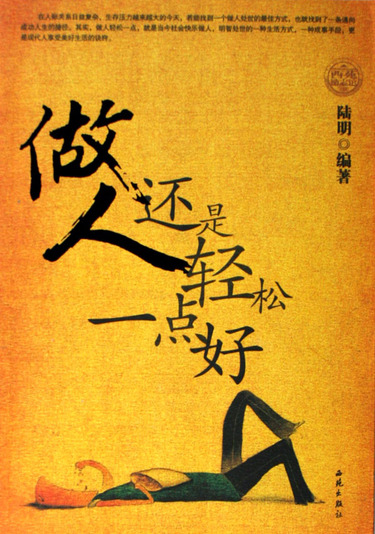 在人际关系日趋复杂，生存压力越来越大的今天，若能找到一个做人处世的最佳方式，也就找到了一条通向
成功人生的捷径。其实，做人轻松一点，就是当今社会快乐做人，明智处世的一种生活方式，一种成事手段，更
是现代人享受美好生活的诀窍。
陆明◎编著
做人
还是
轻松
一点好
西苑出版社